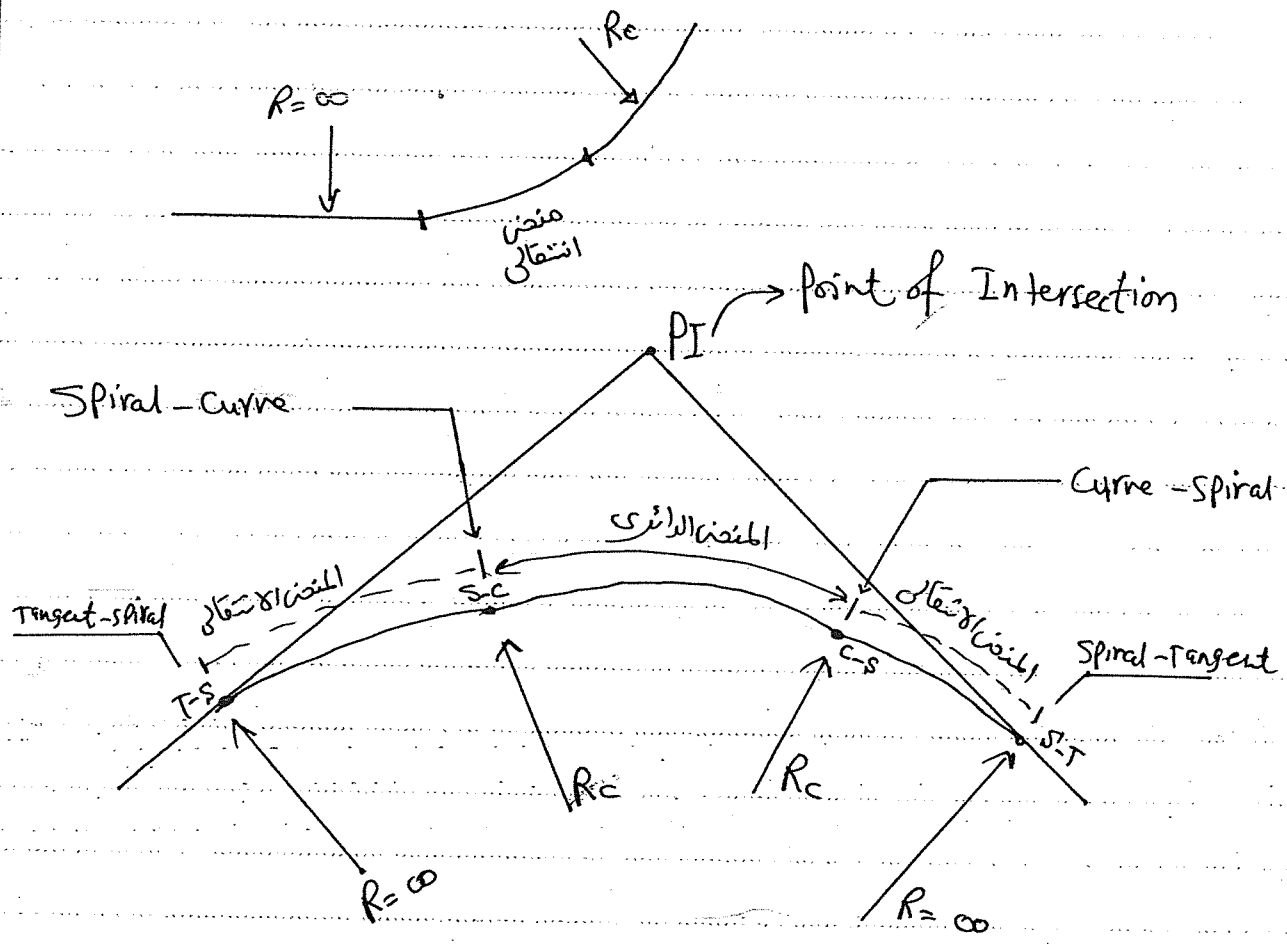 Rc
R= ∞
منحنى
انتقالى
PI
Point of Intersection
Spiral-Curve
Curve-Spiral
المنحنى الدائرى
المنحنى الانتقالى
S-C
المنحنى الانتقالى
Tangent-Spiral
T-S
C-S
Spiral-Tangent
S-T
Rc
Rc
R= ∞
R= ∞